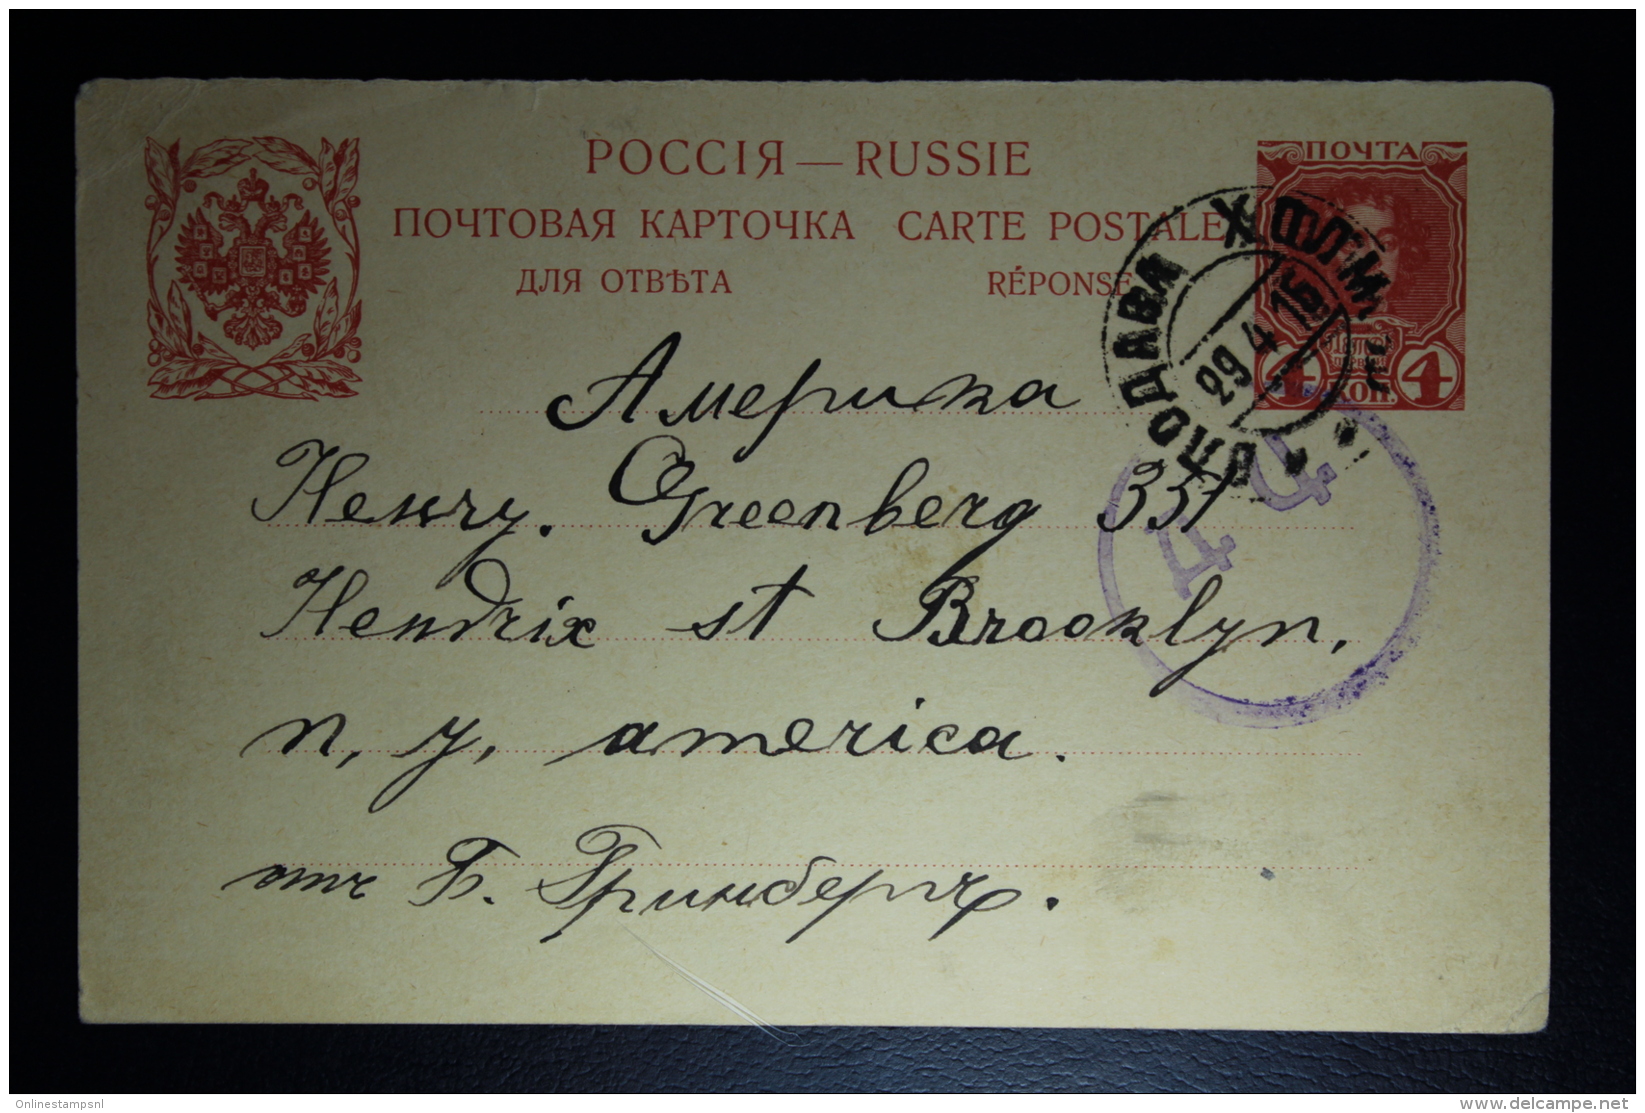 РОССІЯ — RUSSIE
ПОЧТОВАЯ КАРТОЧКА CARTE POSTALE
ДЛЯ ОТВѢТА RÉPONSE
ПОЧТА
4 КОП. 4
ВЛОДАВА ХОЛМ.
29 4 15
Д Ц
Америка
Henry. Greenberg 331
Hendrix st Brooklyn,
n, y, america.
отъ Б. Гринбергъ.
Onlinestampsnl
www.delcampe.net